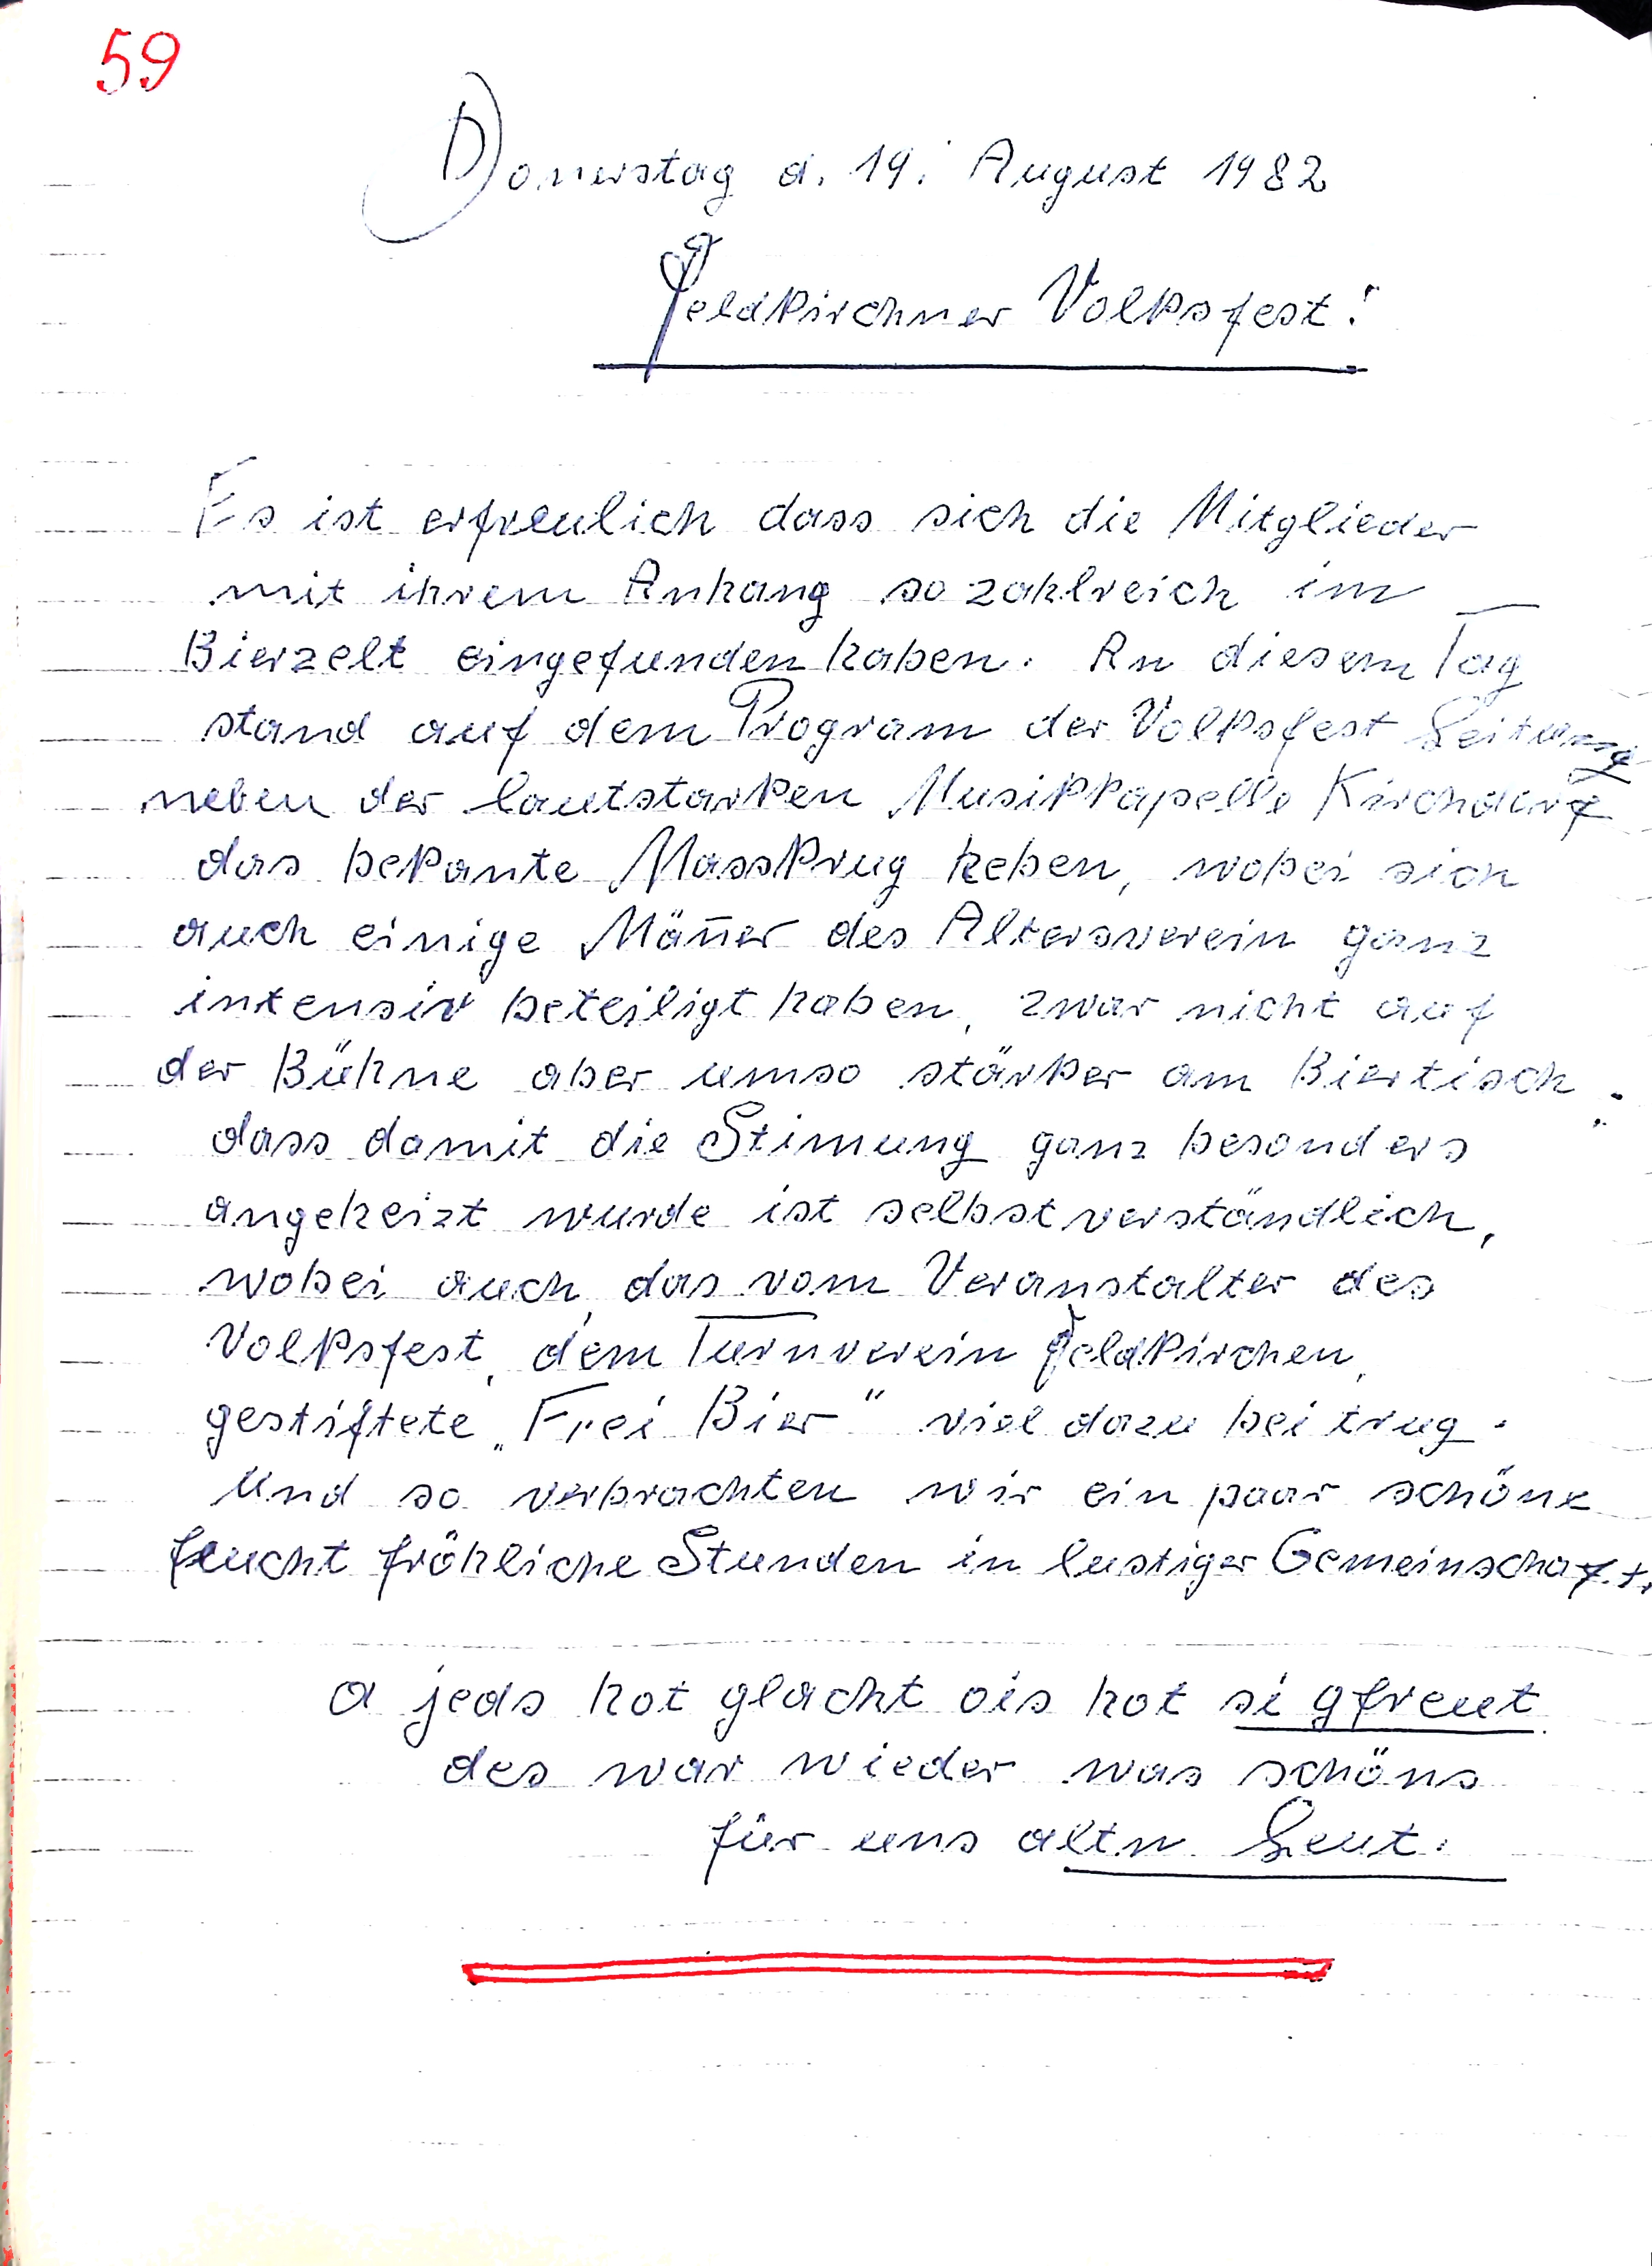 59
Donerstag d. 19. August 1982
Feldkirchner Volksfest!
Es ist erfreulich dass sich die Mitglieder
mit ihrem Anhang so zahlreich im
Bierzelt eingefunden haben. An diesem Tag
stand auf dem Program der Volksfest Leitung
neben der lautstarken Musikkapelle Kirchdorf
das bekante Masskrug heben, wobei sich
auch einige Mäner des Altersverein ganz
intensiv beteiligt haben, zwar nicht auf
der Bühne aber umso stärker am Biertisch;
dass damit die Stimung ganz besonders
angeheizt wurde ist selbstverständlich,
wobei auch, das vom Veranstalter des
Volksfest, dem Turnverein Feldkirchen,
gestiftete „Frei Bier" viel dazu bei trug.
Und so verbrachten wir ein paar schöne
feucht fröhliche Stunden in lustiger Gemeinschaft.
a jeds hot glacht ois hot si gfreut
des war wieder was schöns
für uns altn Leut.